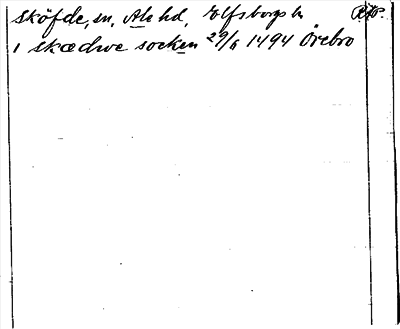 Sköfde, sn, Ale hd, Elfsborgs ln
i skædwe socken 29/6 1494 Örebro